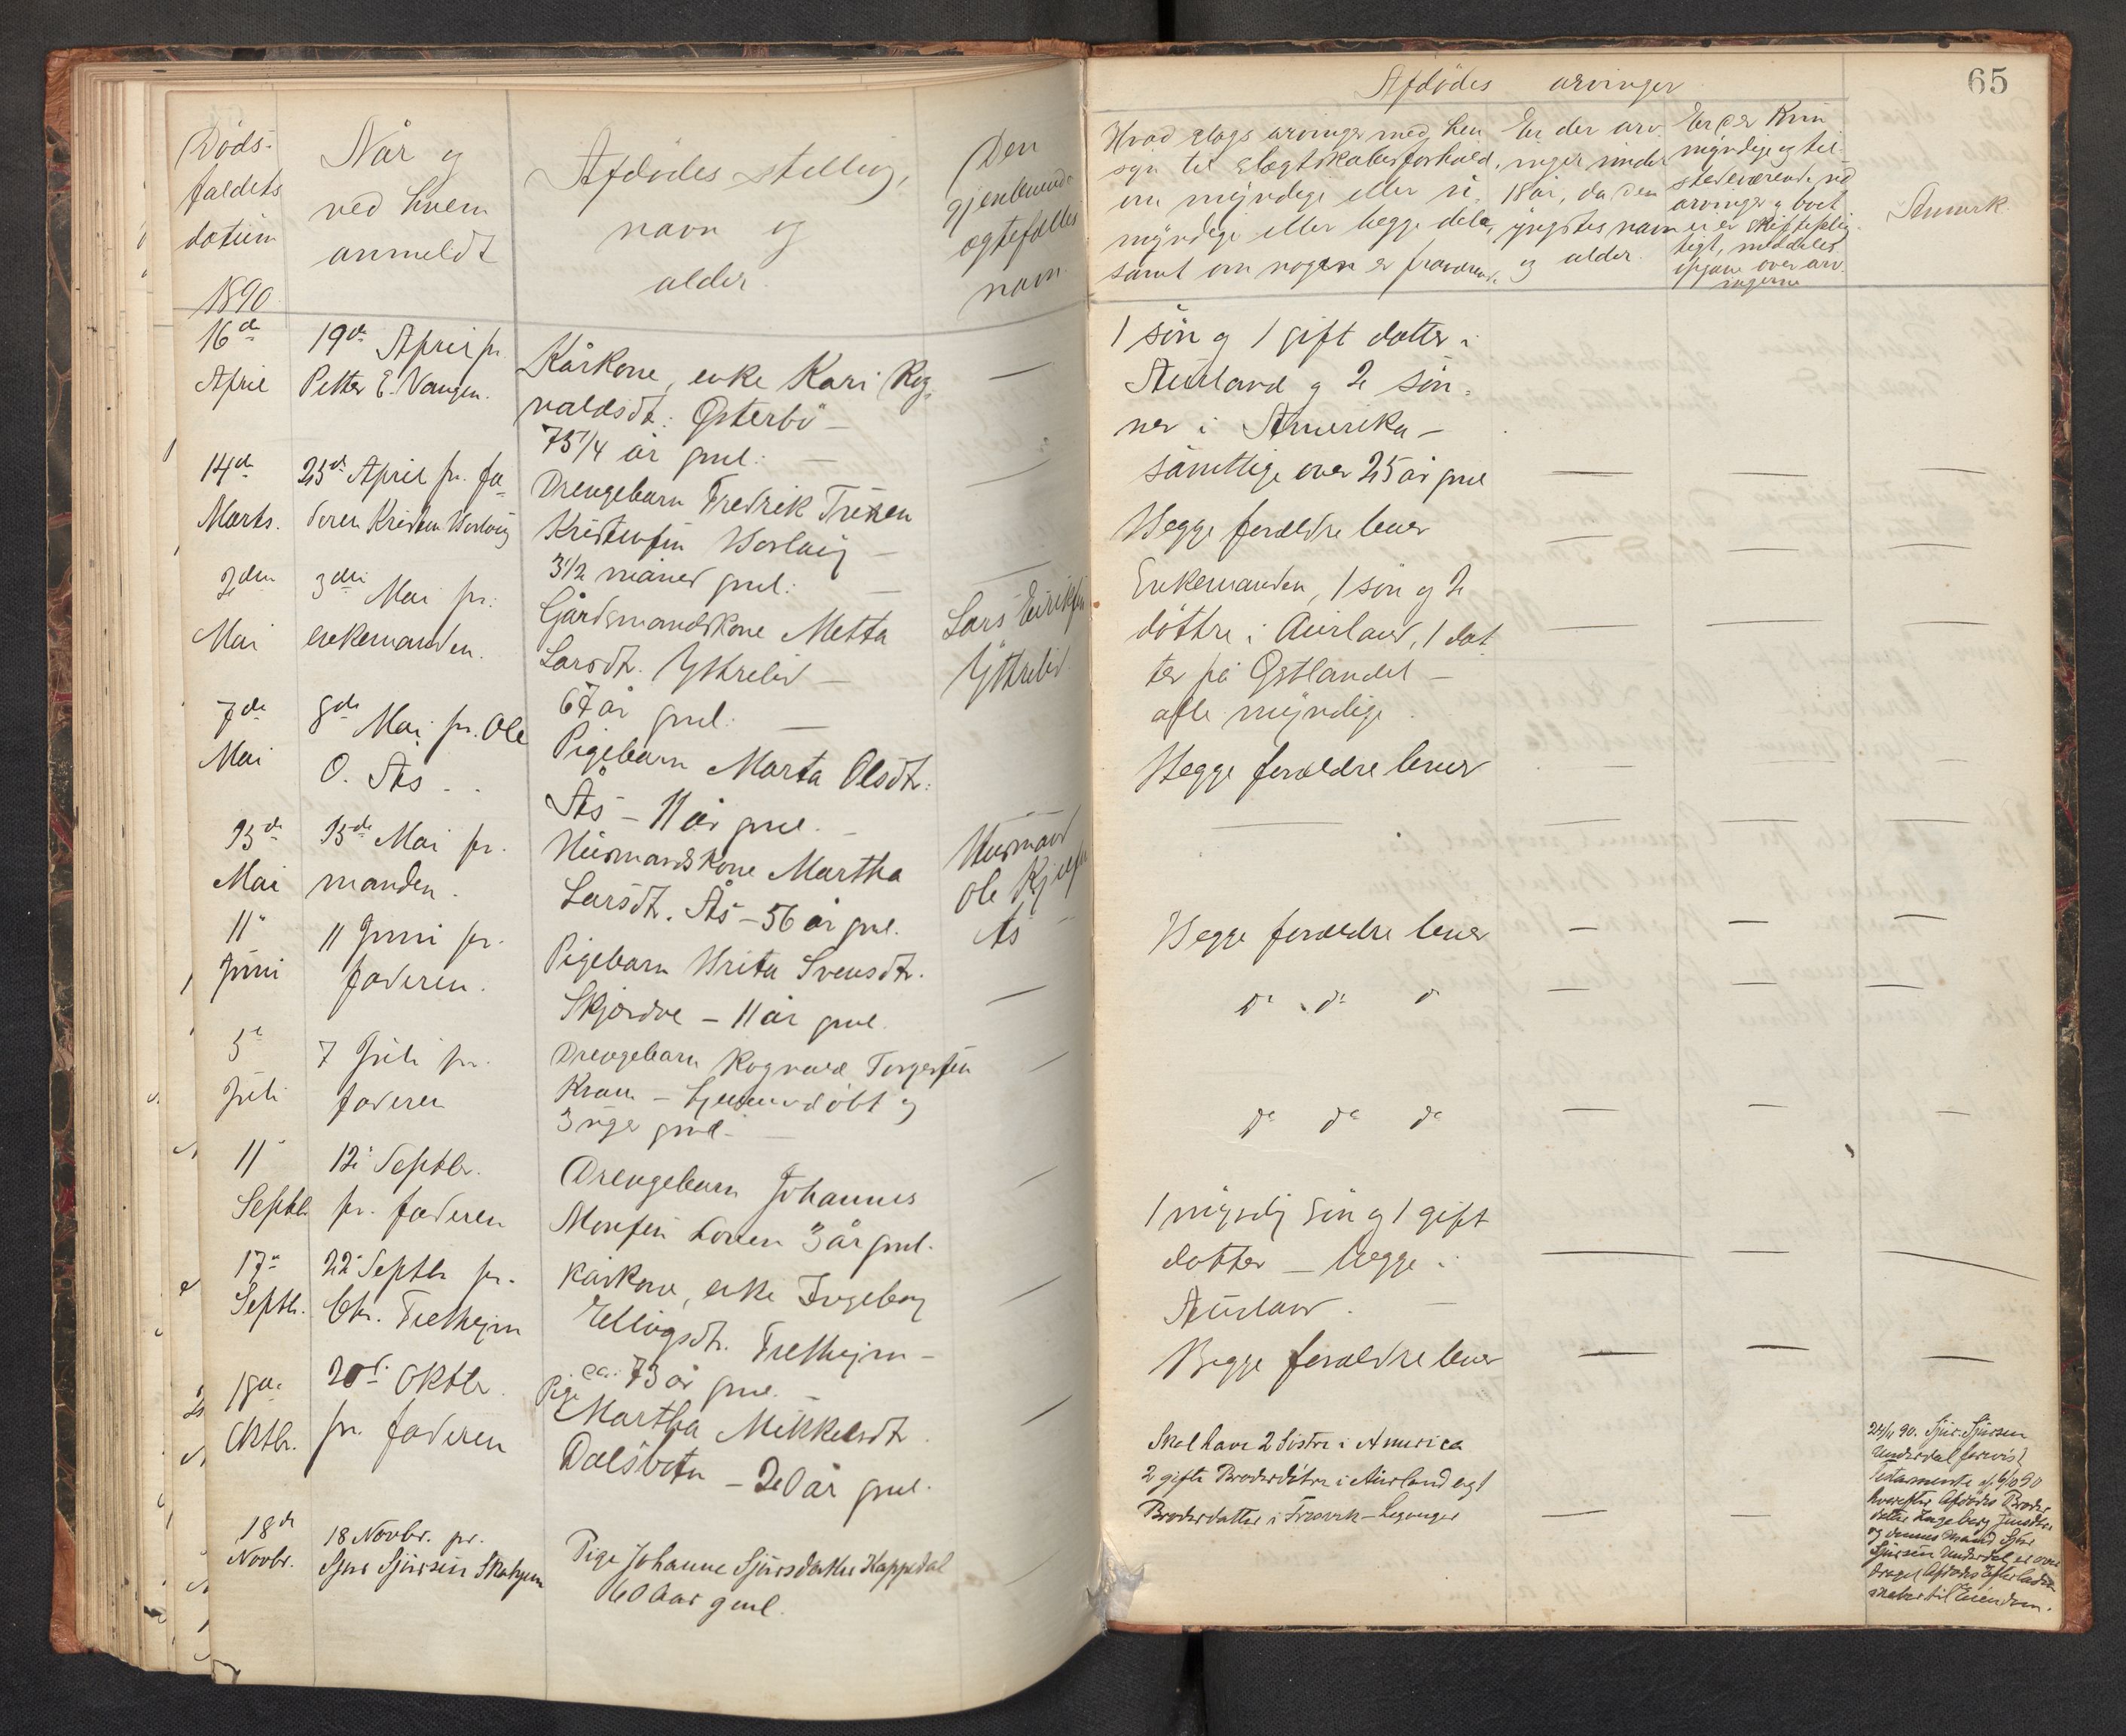 Døds-
faldets
datum
1890
Når og
ved hvem
anmeldt
Afdødes stilling,
navn og
alder.
Den
gjenlevende
ægtefælles
navn.
16de
April
19de April pr.
Petter E. Vangen.
Kårkone, enke Kari Rog-
valdsdt: Østerbö –
75 1/4 år gml: –
14de
Marts.
23de April pr. fa-
deren Kristen
Drengebarn Fredrik
Kristensen
3 1/2 måned gml: –
2den
Mai
3die Mai pr:
enkemanden.
Gårdsmandskone Metta
Larsdt. Ythrelid –
67 år gml. –
Lars Eiriksen
Ythrelid
7de
Mai
8de Mai pr. Ole
O. Ås - .
Pigebarn Marta Olsdt:
Ås – 11 år gml. –
Mai
Mai pr.
manden.
Husmandskone Martha
Larsdt. Ås – 56 år gml.
Husmand
Ole
Ås –
11te
Juni
11 Juni pr.
faderen.
Pigebarn Brita Svensdt.
Skjerdve – 11 år gml.
5te
Juli
7 Juli pr.
faderen
Drengebarn Rogvald Torgersen
– hjemmedøbt og
3 uger gml. –
11te
Septbr.
12te Septbr.
pr. faderen
Drengebarn Johannes
Monsen 3 år gml.
17de
Septbr.
22de Septbr pr.
Chr. Fretheim
Kårkone, enke Ingeborg
Ellingsdt. Fretheim –
ca. 73 år gml. –
18de
Oktbr.
20de Oktbr.
pr. faderen
Pige
Martha Mikkelsdt.
Dalsbotn – 20 år gml.
18de
Novbr.
18 Novbr. pr.
Sjur Sjursen
Pige Johanne Sjursdatter Kappadal
60 Aar gml.
65
Afdødes arvinger
Hvad slags arvinger med hen
syn til slægtskabsforhold,
om myndige eller u-
myndige eller begge dele,
samt om nogen er fraværend.
Er der arv-
inger under
18 år, da den
yngstes navn
og alder.
Er der kun
myndige og til-
stedeværende
arvinger og boet
ei er skifteplig-
tigt, meddeles
opgave over arv-
ingerne
Anmerk.
1 sön og 1 gift datter i
Aurland og 2 sön-
ner i Amerika –
samtlige over 25 år gml
Begge forældre lever
Enkemanden, 1 sön og 2
döttre i Aurland, 1 dat
ter på Østlandet –
alle myndige.
Begge forældre lever
Begge forældre lever
do do do
do do do
1 myndig sön og 1 gift
datter – begge i
Aurland. –
Begge forældre lever
Skal have 2 Söstre i America
2 gifte Broderdötre i Aurland og 1
Broderdatter i Fresvik – Leganger
90. Sjur Sjursen
Underdal
Testamente
hvorefter Afdødes Broder-
datter Ingeborg Jensdtr
og dennes Mand Sjur
Sjursen Underdal er over-
draget Afdødes Efterladen-
skaber til Eiendom.